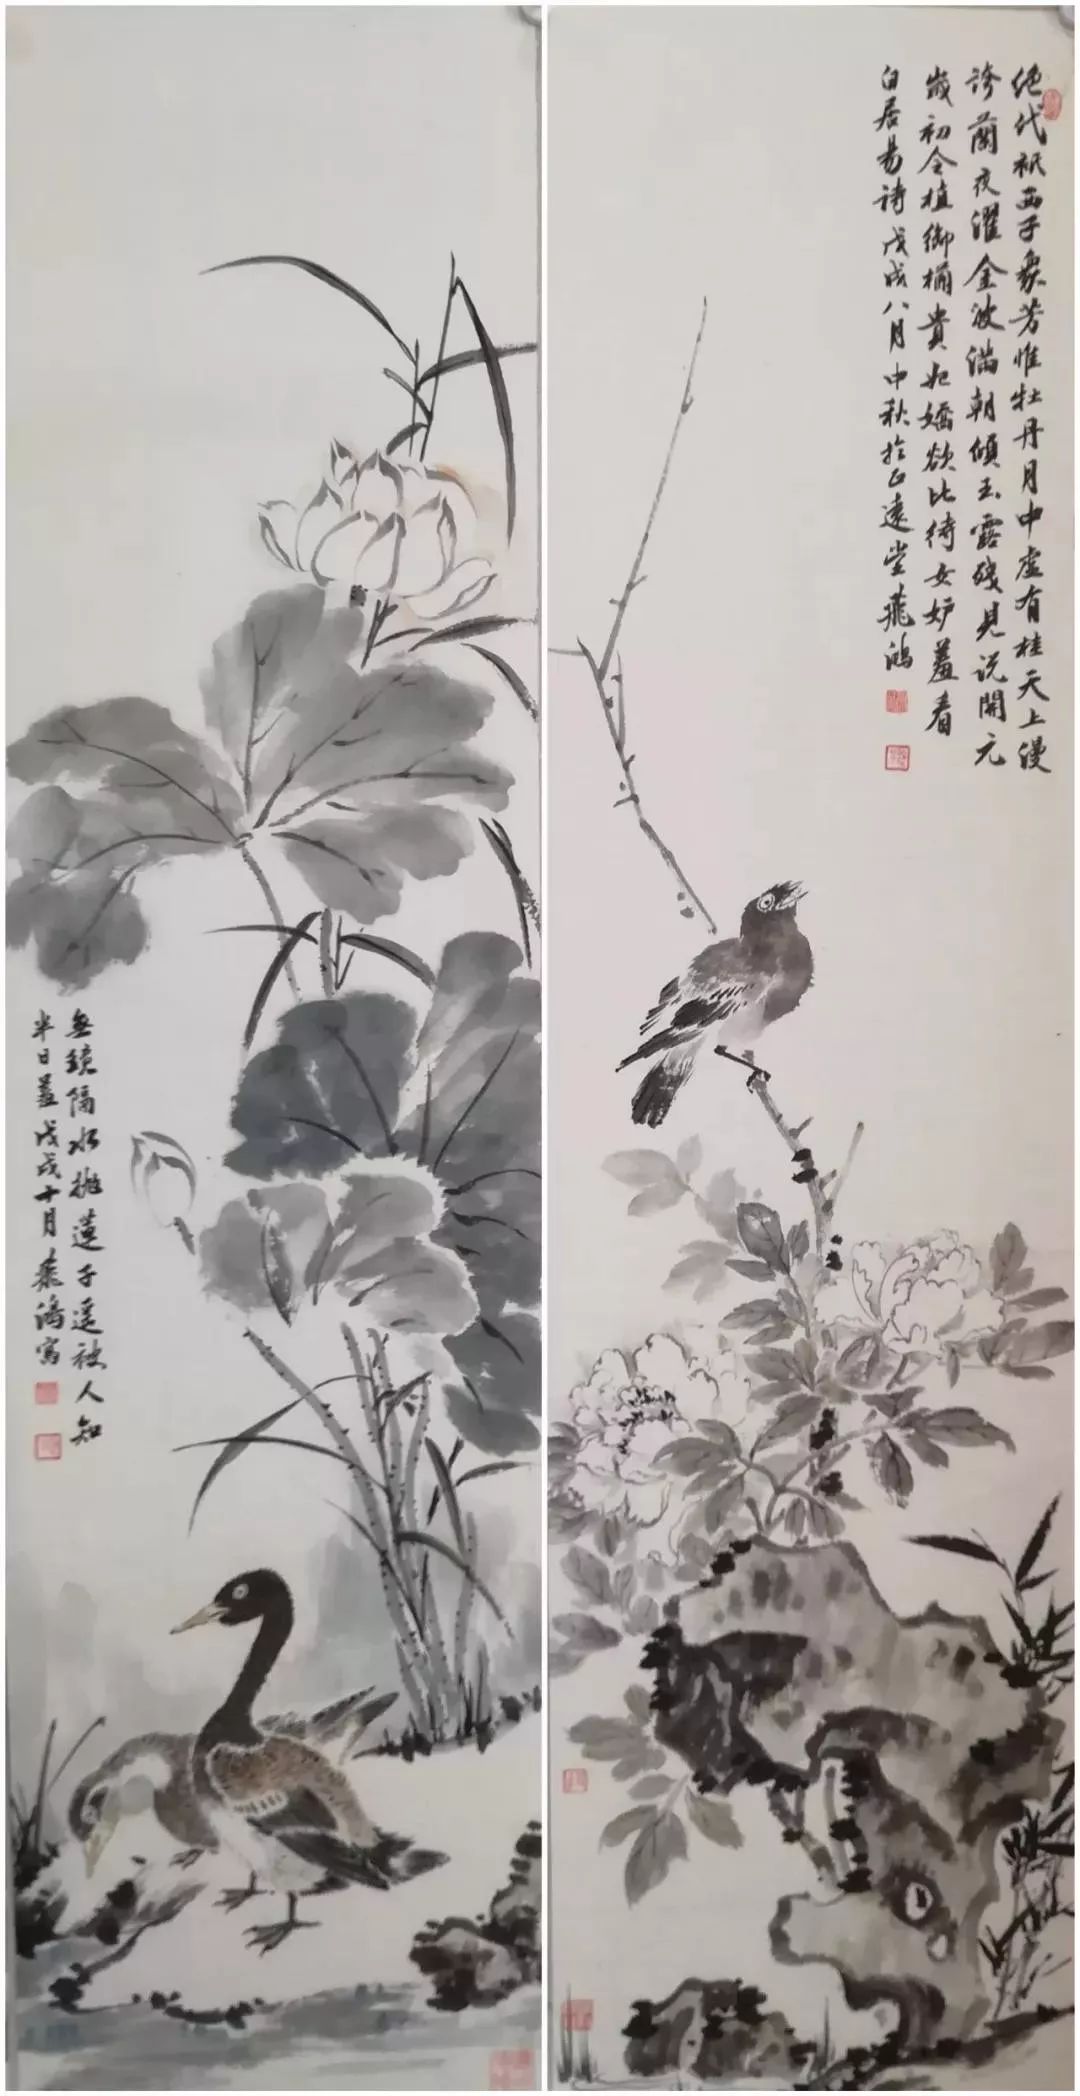 絶代秖西子衆芳惟牡丹月中虚有桂天上漫
誇蘭夜濯金波滿朝傾玉露殘見说開元
歲初令植御欄貴妃嬌欲比侍女妒羞看
白居易诗戊戌八月中秋於正遠堂飛鴻
無鏡隔水抛蓮子遥被人知
半日羞戊戌十月飛鴻寫